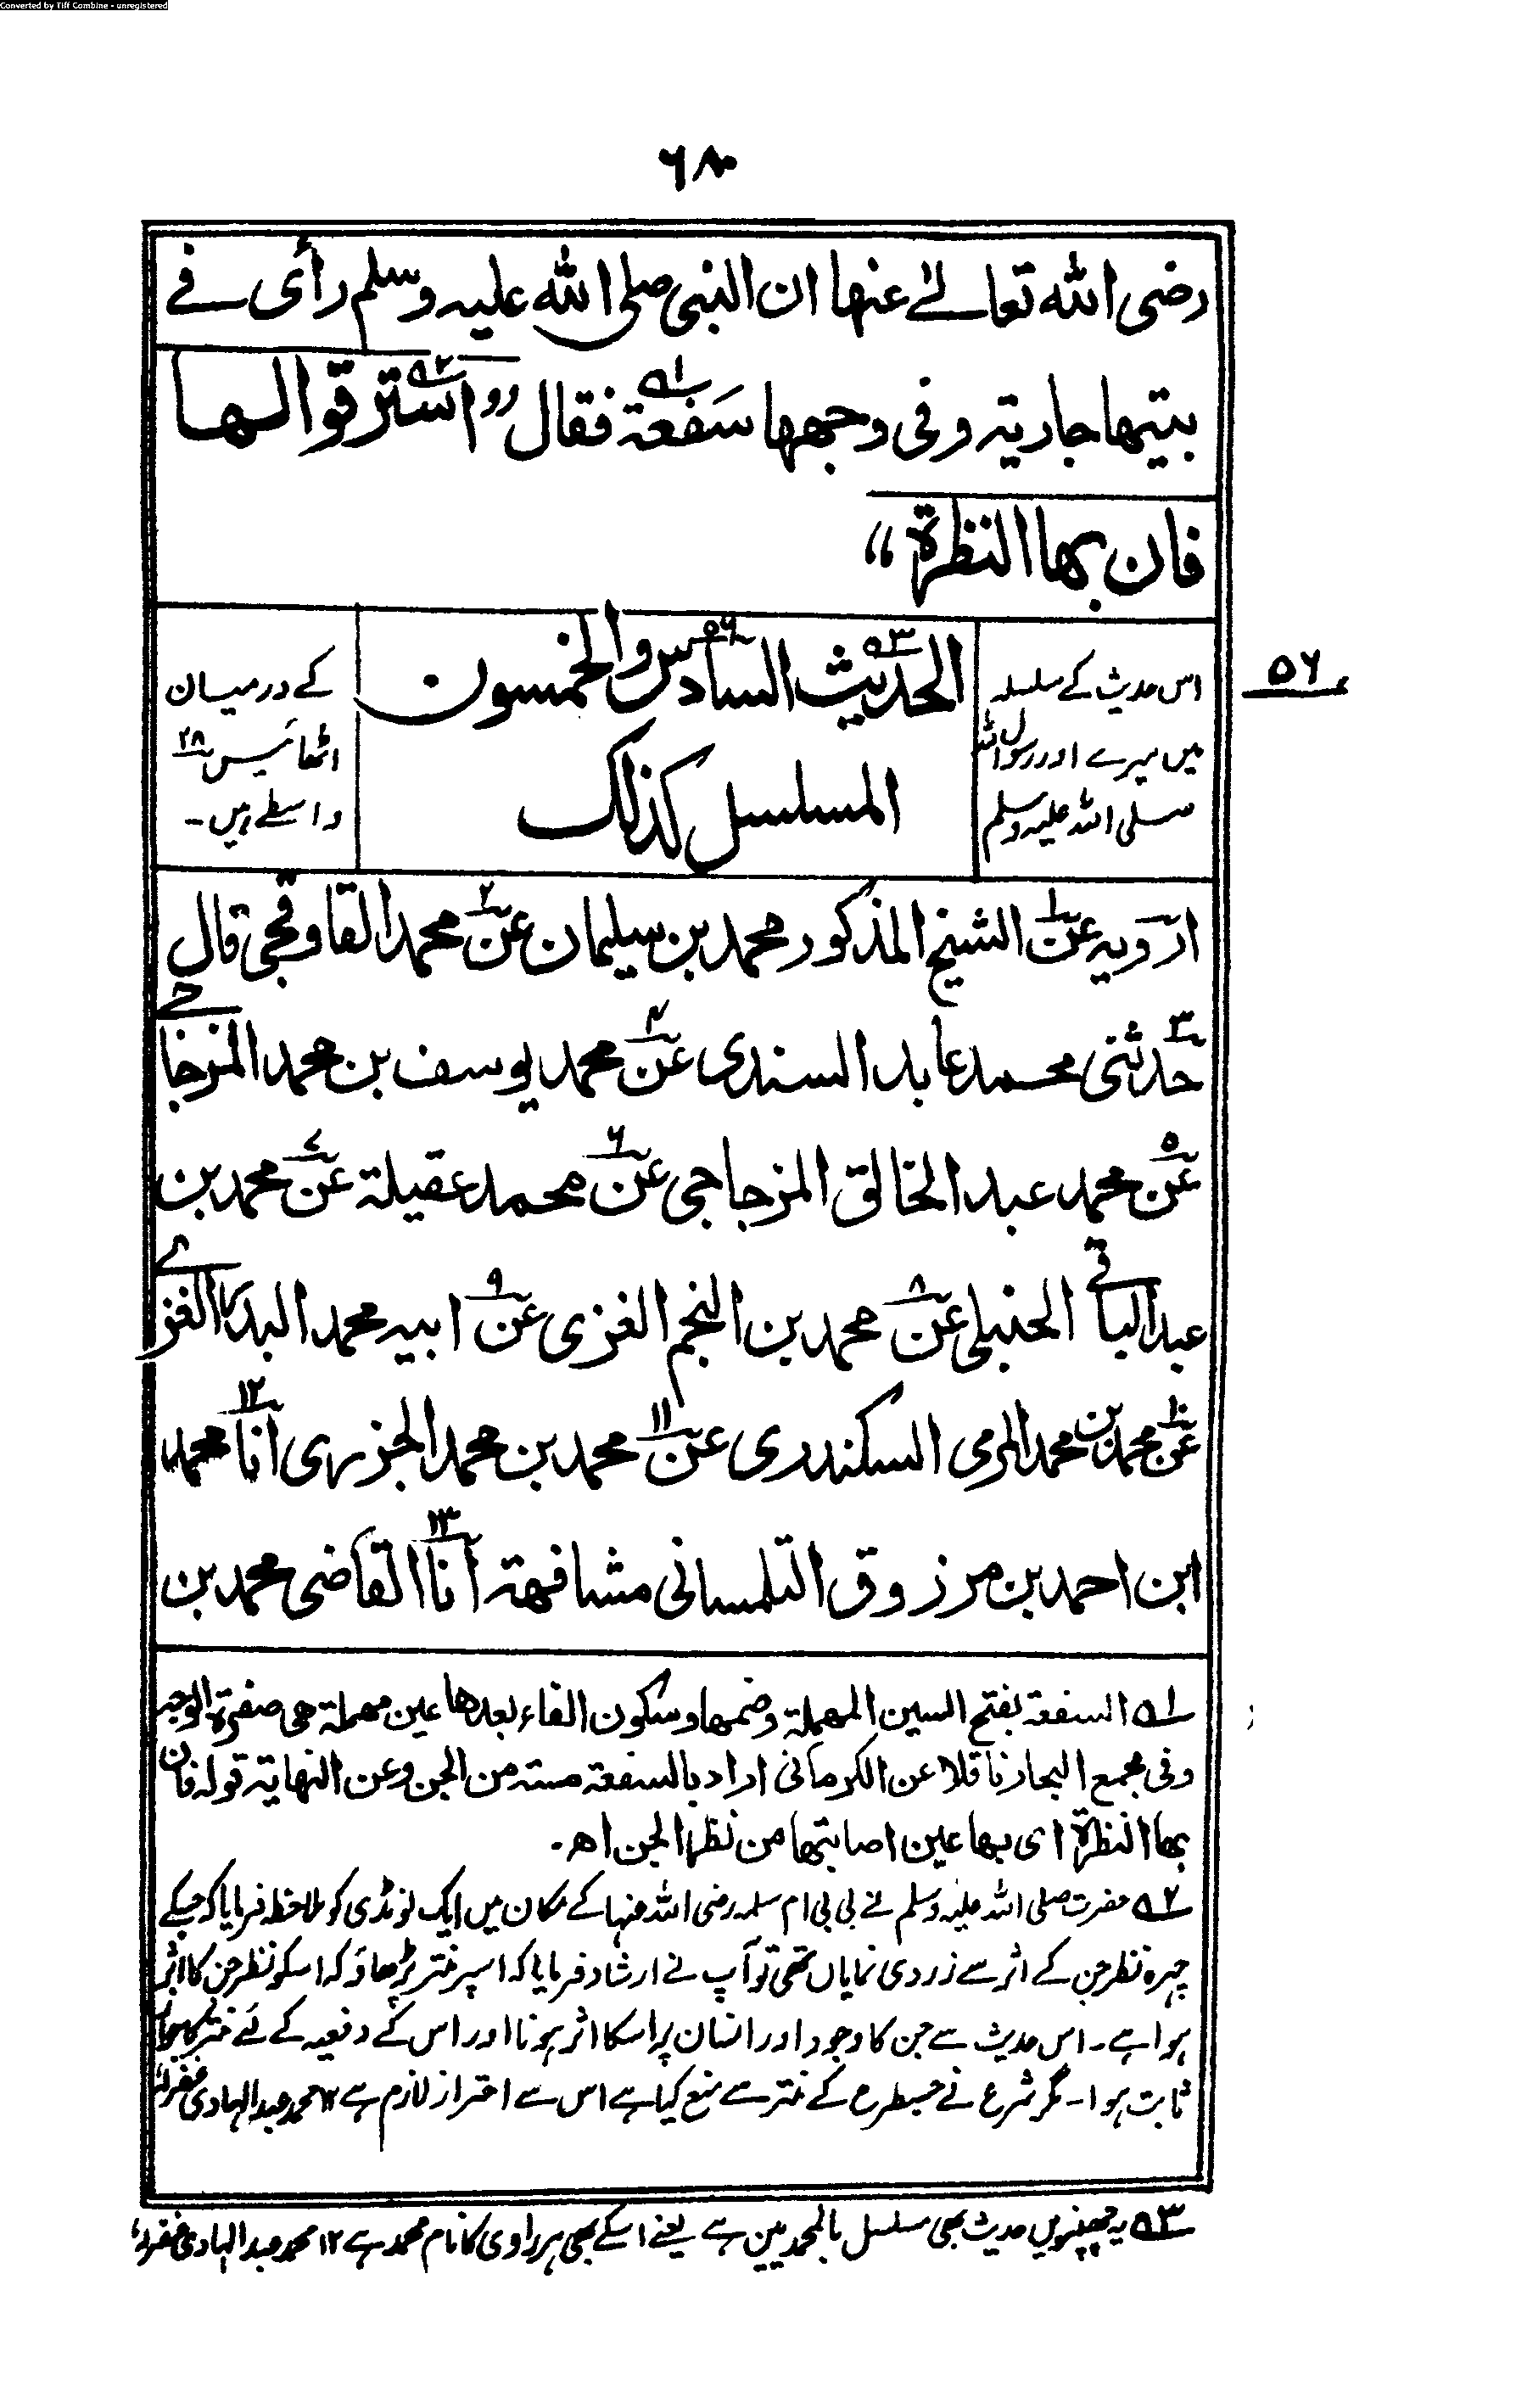 Converted by Tiff Combine - unregistered
۶۸۰
رضی اللہ تعالےٰ عنہا ان النبی صلی اللہ علیہ وسلم رأی فے
بیتہا جاریۃ وفی وجہہا سَفعۃ۱ فقال "استرقوا۲ لہا
فان بہا النظرۃ"
۵۶
اس حدیث کے سلسلہ
میں میرے اور رسول اللہ
صلی اللہ علیہ وسلم
الحدیث۳ السادس والخمسون۵۶
المسلسل کذلک
کے درمیان
اٹھائیس ۲۸
واسطے ہیں۔
ارویہ عن۱ الشیخ المذکور محمد بن سلیمان عن۲ محمد القاوقجی قال
حدثنی۳ محمد عابد السندی عن۴ محمد یوسف بن محمد المزجاجے
عن۵ محمد عبد الخالق المزجاجی عن۶ محمد عقیلۃ عن۷ محمد بن
عبد الباقے الحنبلی عن۸ محمد بن النجم الغزی عن۹ ابیہ محمد البدر الغزے
عن۱۰ محمد بن محمد المرمی السکندری عن۱۱ محمد بن محمد الجزری انا۱۲ محمد
ابن احمد بن مرزوق التلمسانی مشافہۃ انا۱۳ القاضی محمد بن
۱ السفعۃ بفتح السین المہملۃ وضمہا وسکون الفاء بعدہا عین مہملۃ ہی صفرۃ الوجہ
وفی مجمع البحار ناقلا عن الکرمانی اراد بالسفعۃ مستہ من الجن وعن النہایۃ قولہ فان
بہا النظرۃ ای بہا عین اصابتہا من نظر الجن اھ۔
۲ حضرت صلی اللہ علیہ وسلم نے بی بی ام سلمہ رضی اللہ عنہا کے مکان میں ایک لونڈی کو ملاحظہ فرمایا کہ جسکے
چہرہ نظر جن کے اثر سے زردی نمایاں تھی تو آپ نے ارشاد فرمایا کہ اسپر منتر پڑھاؤ کہ اسکو نظر جن کا اثر
ہوا ہے۔ اس حدیث سے جن کا وجود اور انسان پر اسکا اثر ہونا اور اس کے دفعیہ کے لئے منتر کا
ثابت ہوا۔ مگر شرع نے جسطرح کے منتر سے منع کیا ہے اس سے احتراز لازم ہے ۱۲ محمد عبد الہادی غفرلہ
۳ یہ چھپنویں حدیث بھی مسلسل بالمحمدیین ہے یعنے اسکے بھی ہر راوی کا نام محمد ہے ۱۲ محمد عبد الہادی غفرلہ